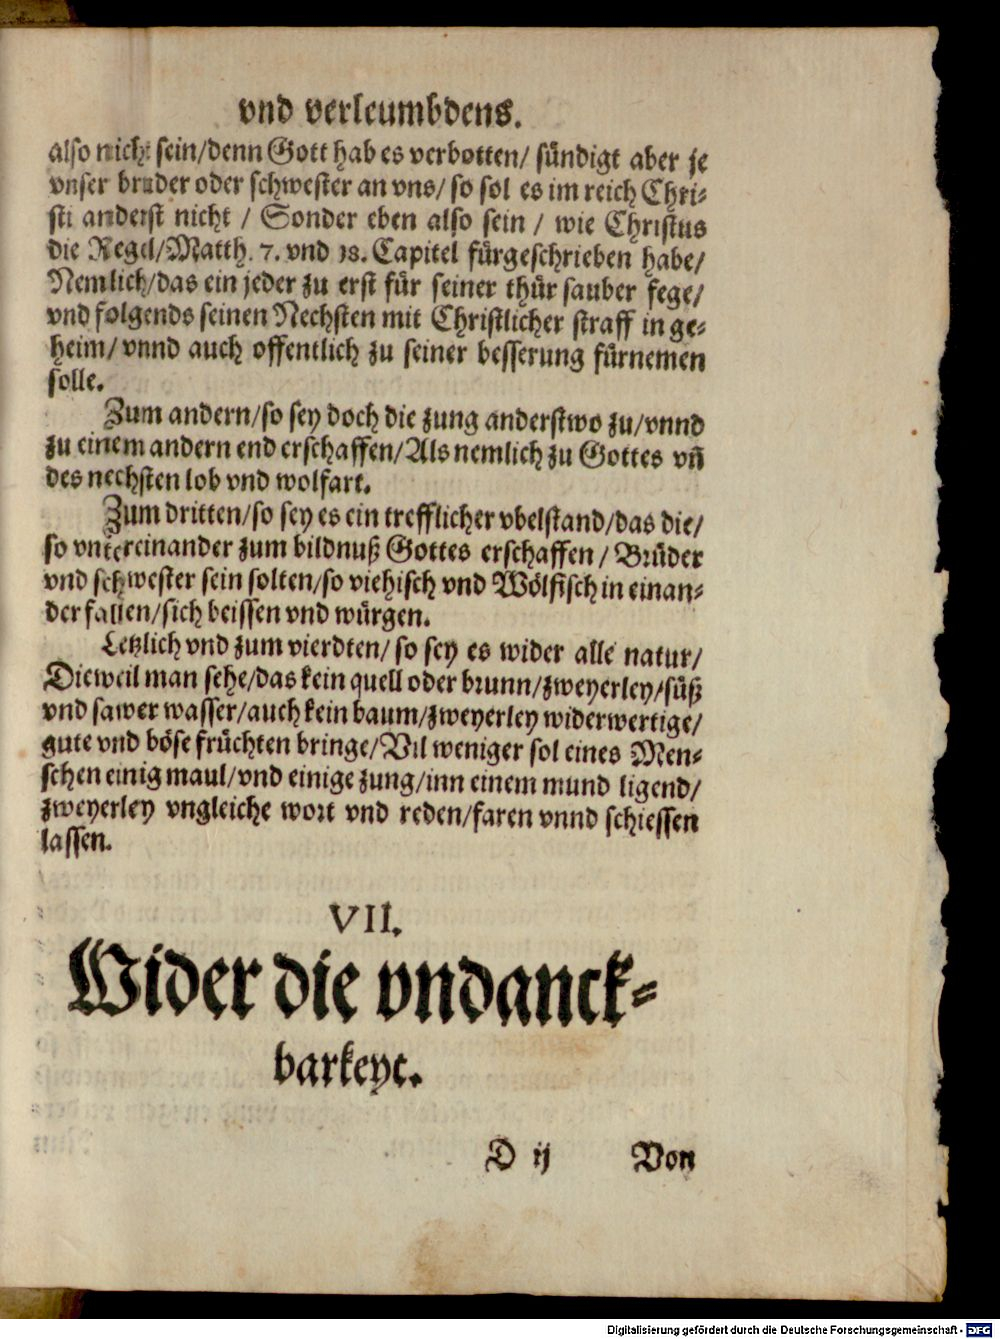 vnd verleumbdens.
also nicht sein/denn Gott hab es verbotten/ sündigt aber je
vnser bruder oder schwester an vns/ so sol es im reich Chri-
sti anderst nicht / Sonder eben also sein / wie Christus
die Regel/Matth. 7. vnd 18. Capitel fürgeschrieben habe/
Nemlich/das ein jeder zu erst für seiner thür sauber fege/
vnd folgends seinen Nechsten mit Christlicher straff in ge-
heim/ vnnd auch offentlich zu seiner besserung fürnemen
solle.
Zum andern/so sey doch die zung anderstwo zu/vnnd
zu einem andern end erschaffen/Als nemlich zu Gottes vn̄
des nechsten lob vnd wolfart.
Zum dritten/so sey es ein trefflicher vbelstand/das die/
so vntereinander zum bildnuß Gottes erschaffen / Brüder
vnd schwester sein solten/so viehisch vnd Wölfisch in einan-
der fallen/sich beissen vnd würgen.
Letzlich vnd zum vierdten/ so sey es wider alle natur/
Dieweil man sehe/das kein quell oder brunn/zweyerley/süß
vnd sawer wasser/auch kein baum/zweyerley widerwertige/
gute vnd böse früchten bringe/Vil weniger sol eines Men-
schen einig maul/vnd einige zung/inn einem mund ligend/
zweyerley vngleiche wort vnd reden/faren vnnd schiessen
lassen.
VII.
Wider die vndanck-
barkeyt.
D ij Von
Digitalisierung gefördert durch die Deutsche Forschungsgemeinschaft - DFG